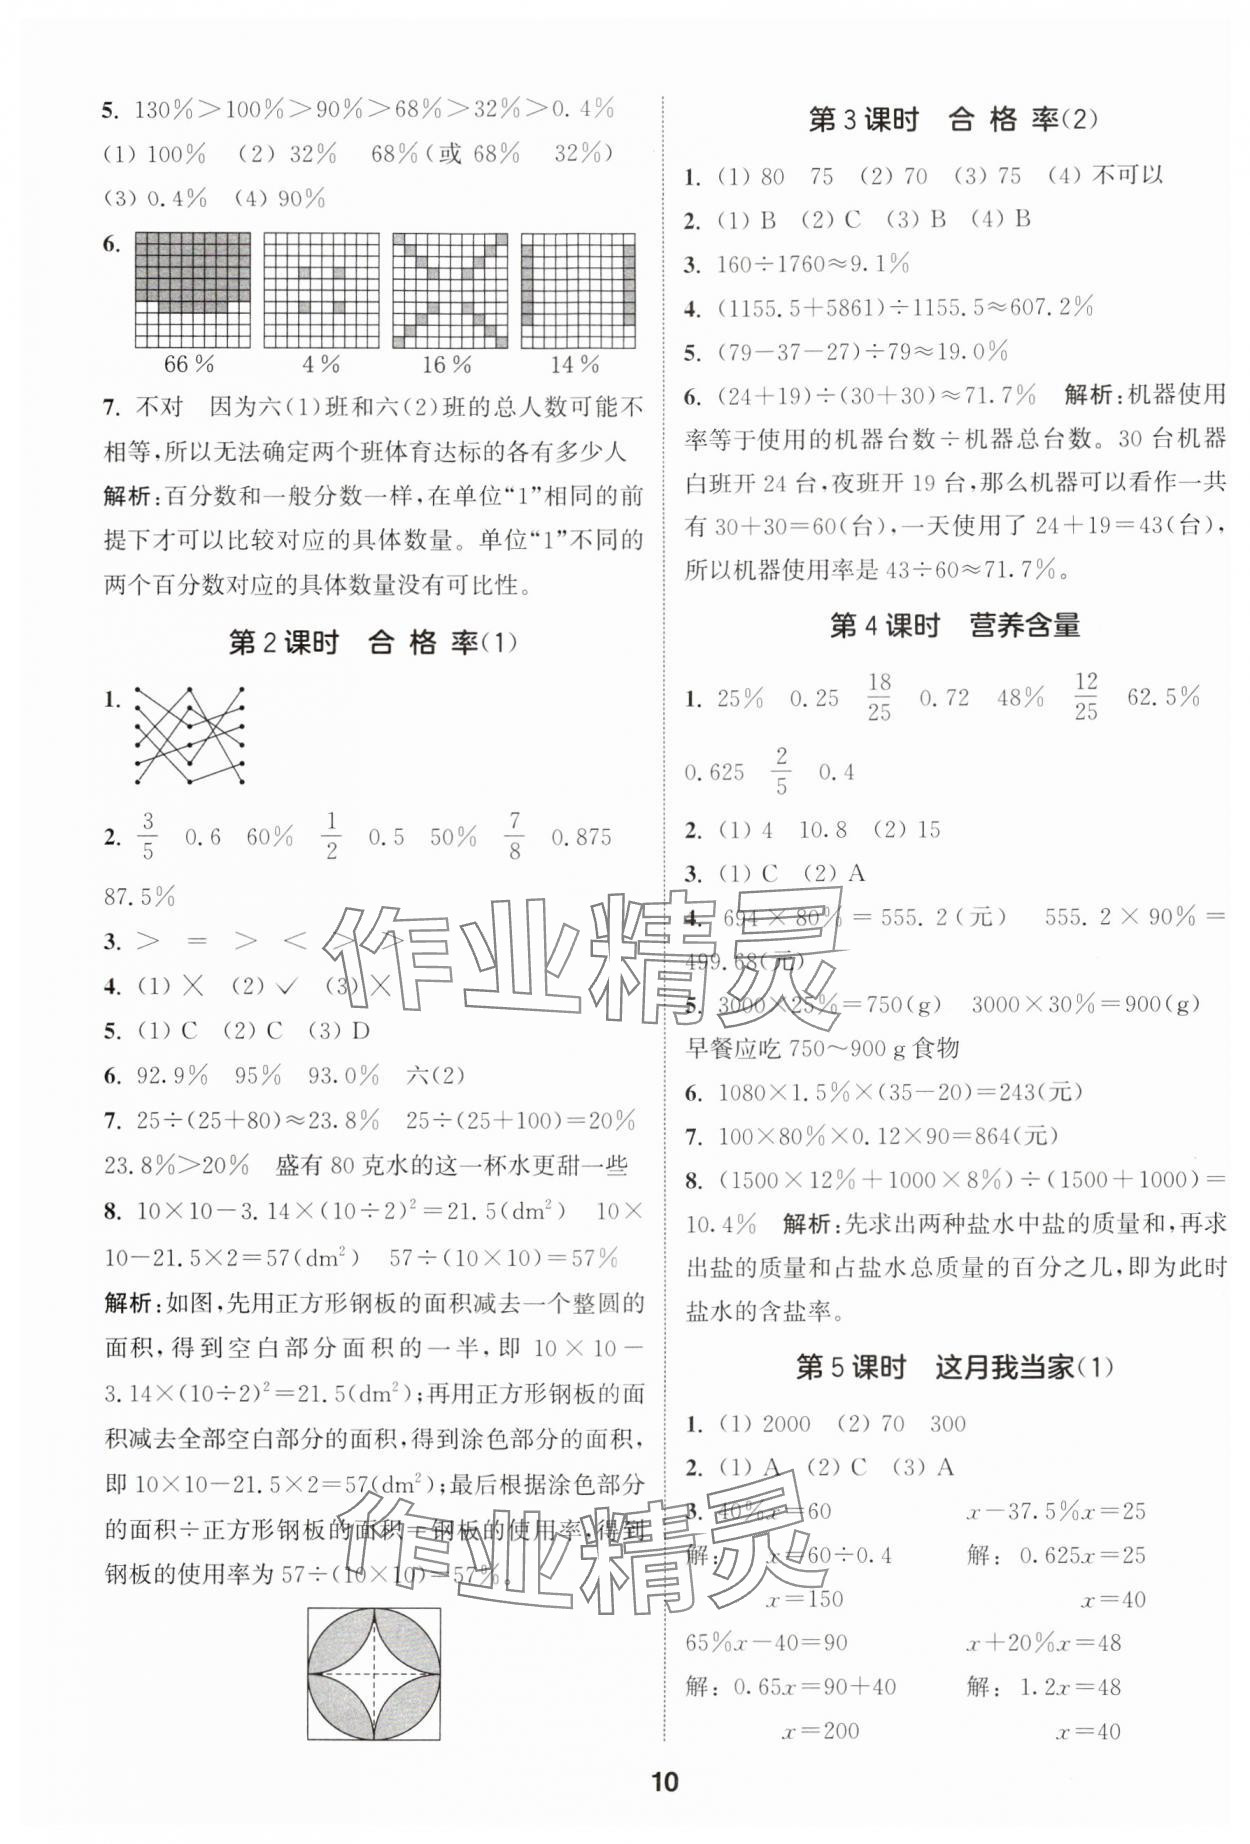 5. 130%＞100%＞90%＞68%＞32%＞0.4%
(1) 100%　(2) 32%　68%(或 68%　32%)
(3) 0.4%　(4) 90%
6.
66%　4%　16%　14%
7. 不对　因为六(1)班和六(2)班的总人数可能不
相等,所以无法确定两个班体育达标的各有多少人
解析:百分数和一般分数一样,在单位“1”相同的前
提下才可以比较对应的具体数量。单位“1”不同的
两个百分数对应的具体数量没有可比性。
第 2 课时　合 格 率(1)
1.
2. 3/5　0.6　60%　1/2　0.5　50%　7/8　0.875
87.5%
3. ＞　＝　＞　＜　＞　＞
4. (1) ×　(2) ✓　(3) ×
5. (1) C　(2) C　(3) D
6. 92.9%　95%　93.0%　六(2)
7. 25÷(25＋80)≈23.8%　25÷(25＋100)＝20%
23.8%＞20%　盛有 80 克水的这一杯水更甜一些
8. 10×10－3.14×(10÷2)²＝21.5(dm²)　10×
10－21.5×2＝57(dm²)　57÷(10×10)＝57%
解析:如图,先用正方形钢板的面积减去一个整圆的
面积,得到空白部分面积的一半,即 10×10－
3.14×(10÷2)²＝21.5(dm²);再用正方形钢板的面
积减去全部空白部分的面积,得到涂色部分的面积,
即 10×10－21.5×2＝57(dm²);最后根据涂色部分
的面积÷正方形钢板的面积＝钢板的使用率,得到
钢板的使用率为 57÷(10×10)＝57%。
第 3 课时　合 格 率(2)
1. (1) 80　75　(2) 70　(3) 75　(4) 不可以
2. (1) B　(2) C　(3) B　(4) B
3. 160÷1760≈9.1%
4. (1155.5＋5861)÷1155.5≈607.2%
5. (79－37－27)÷79≈19.0%
6. (24＋19)÷(30＋30)≈71.7%　解析:机器使用
率等于使用的机器台数÷机器总台数。30 台机器
白班开 24 台,夜班开 19 台,那么机器可以看作一共
有 30＋30＝60(台),一天使用了 24＋19＝43(台),
所以机器使用率是 43÷60≈71.7%。
第 4 课时　营养含量
1. 25%　0.25　18/25　0.72　48%　12/25　62.5%
0.625　2/5　0.4
2. (1) 4　10.8　(2) 15
3. (1) C　(2) A
4. 694×80%＝555.2(元)　555.2×90%＝
499.68(元)
5. 3000×25%＝750(g)　3000×30%＝900(g)
早餐应吃 750～900 g 食物
6. 1080×1.5%×(35－20)＝243(元)
7. 100×80%×0.12×90＝864(元)
8. (1500×12%＋1000×8%)÷(1500＋1000)＝
10.4%　解析:先求出两种盐水中盐的质量和,再求
出盐的质量和占盐水总质量的百分之几,即为此时
盐水的含盐率。
第 5 课时　这月我当家(1)
1. (1) 2000　(2) 70　300
2. (1) A　(2) C　(3) A
3. 40%x＝60　x－37.5%x＝25
解:　x＝60÷0.4　解: 0.625x＝25
x＝150　x＝40
65%x－40＝90　x＋20%x＝48
解: 0.65x＝90＋40　解: 1.2x＝48
x＝200　x＝40
作业精灵
作业精灵
10